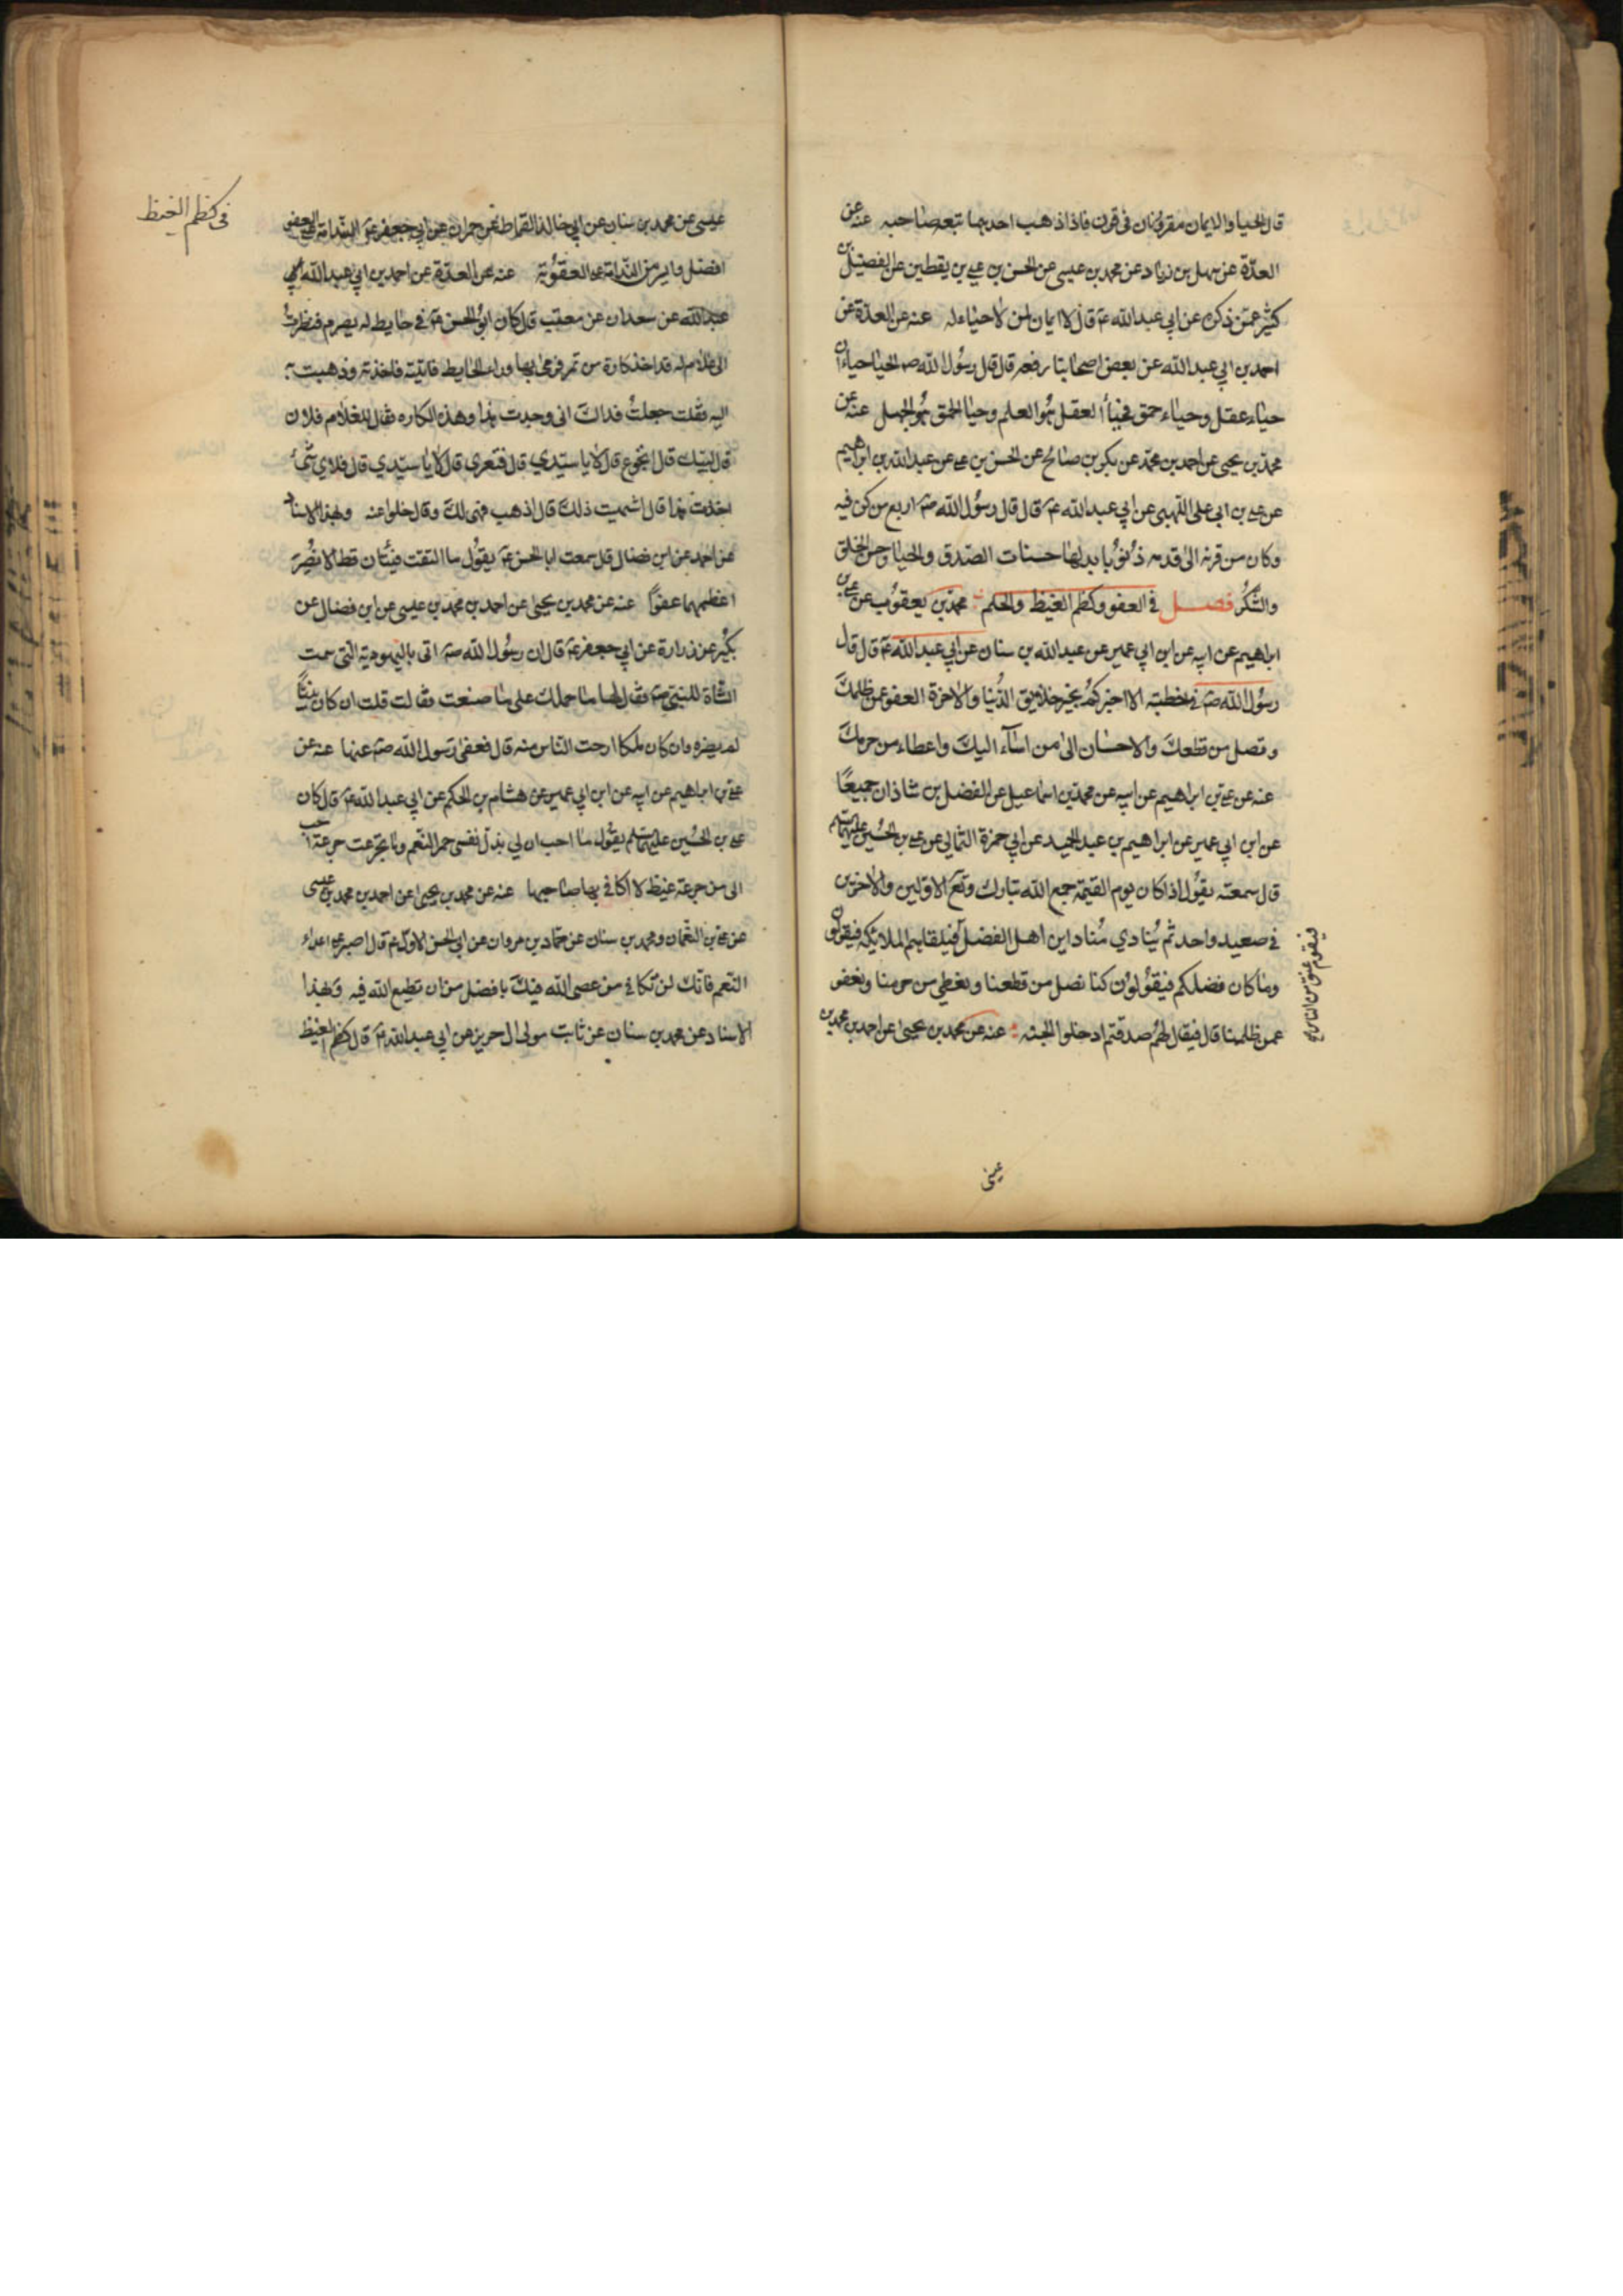 قال الحيا والايمان مقرونان في قرن فاذا ذهب احديهما تبعه صاحبه عنه عن
العدّة عن سهل بن زياد عن محمد بن عيسى عن الحسن بن علي بن يقطين عن الفضيل بن
كثير عمّن ذكره عن ابي عبد الله عم قال لا ايمان لمن لا حياء له عنه عن العدّة عن
احمد بن ابي عبد الله عن بعض اصحابنا رفعه قال قال رسول الله صم الحيا حياءان
حياء عقل وحياء حمق فحيأ العقل هو العلم وحيا الحمق هو الجهل عنه عن
محمد بن يحيى عن احمد بن محمد عن بكر بن صالح عن الحسن بن علي عن عبد الله بن ابراهيم
عن علي بن ابي على اللهبي عن ابي عبد الله عم قال قال رسول الله صم اربع من كن فيه
وكان من قرنه الى قدمه ذنوبا بدلها حسنات الصّدق والحيا وحسن الخلق
والشكر فصل في العفو وكظم الغيظ والحلم محمد بن يعقوب عن علي بن
ابراهيم عن ابيه عن ابن ابي عمير عن عبد الله بن سنان عن ابي عبد الله عم قال قال
رسول الله صم في خطبته الا اخبركم بخير خلايق الدّنيا والاخرة العفو عمن ظلمك
وتصل من قطعك والاحسان الى من اسآء اليك واعطاء من حرمك
عنه عن علي بن ابراهيم عن ابيه عن محمد بن اسماعيل عن الفضل بن شاذان جميعًا
عن ابن ابي عمير عن ابراهيم بن عبد الحميد عن ابي حمزة الثمالي عن علي بن الحسين عليهما السلم
قال سمعته يقول اذا كان يوم القيمة جمع الله تبارك وتعم الاولين والاخرين
في صعيد واحد ثم ينادي مناد اين اهل الفضل فيلقاهم الملايكه فيقولون
وما كان فضلكم فيقولون كنا نصل من قطعنا ونعطي من حرمنا ونعفو
عمن ظلمنا قال فيقال لهم صدقتم ادخلوا الجنه عنه عن محمد بن يحيى عن احمد بن محمد بن
فيقوم عنق من الناس
عيسى
في كظم الغيظ
عيسى عن محمد بن سنان عن ابي خالد القماط عن حمران عن ابي جعفر عم الندامة على العفو
افضل وايسر من الندامة على العقوبة عنه عن العدّة عن احمد بن ابي عبد الله عن ابي
عبد الله عن سعدان عن معتب قال كان ابو الحسن عم في حايط له يصرم فنظرت
الى غلام له قد اخذ كارة من تمر فرمى بها وراء الحايط فاتيته فاخذته وذهبت به
اليه فقلت جعلت فداك اني وجدت هذا وهذه الكاره فقال للغلام فلان
قال لبيك قال اتجوع قال لا يا سيّدي قال فتعري قال لا يا سيّدي قال فلاي شيء
اخذت هذا قال اشتهيت ذلك قال اذهب فهي لك وقال خلوا عنه وبهذا الاسناد
عن احمد عن ابن فضال قال سمعت ابا الحسن عم يقول ما التقت فئتان قط الا نصر
اعظمهما عفوًا عنه عن محمد بن يحيى عن احمد بن محمد بن عيسى عن ابن فضال عن
بكير عن زرارة عن ابي جعفر عم قال ان رسول الله صم اتي باليهودية التي سمت
الشاة للنبي صم فقال لها ما حملك على ما صنعت فقالت قلت ان كان نبيًّا
لم يضره وان كان ملكا ارحت الناس منه قال فعفى رسول الله صم عنها عنه عن
علي بن ابراهيم عن ابيه عن ابن ابي عمير عن هشام بن الحكم عن ابي عبد الله عم قال كان
علي بن الحسين عليهما السلم يقول ما احب ان لي بذل نفسي حمر النعم وما تجرعت جرعة احب
الى من جرعة غيظ لا اكافي بها صاحبها عنه عن محمد بن يحيى عن احمد بن محمد بن عيسى
عن علي بن النعمان ومحمد بن سنان عن عمّار بن مروان عن ابي الحسن الاول عم قال اصبر على اعداء
النعم فانك لن تكافي من عصى الله فيك بافضل من ان تطيع الله فيه وبهذا
الاسناد عن محمد بن سنان عن ثابت مولى ال حريز عن ابي عبد الله عم قال كظم الغيظ